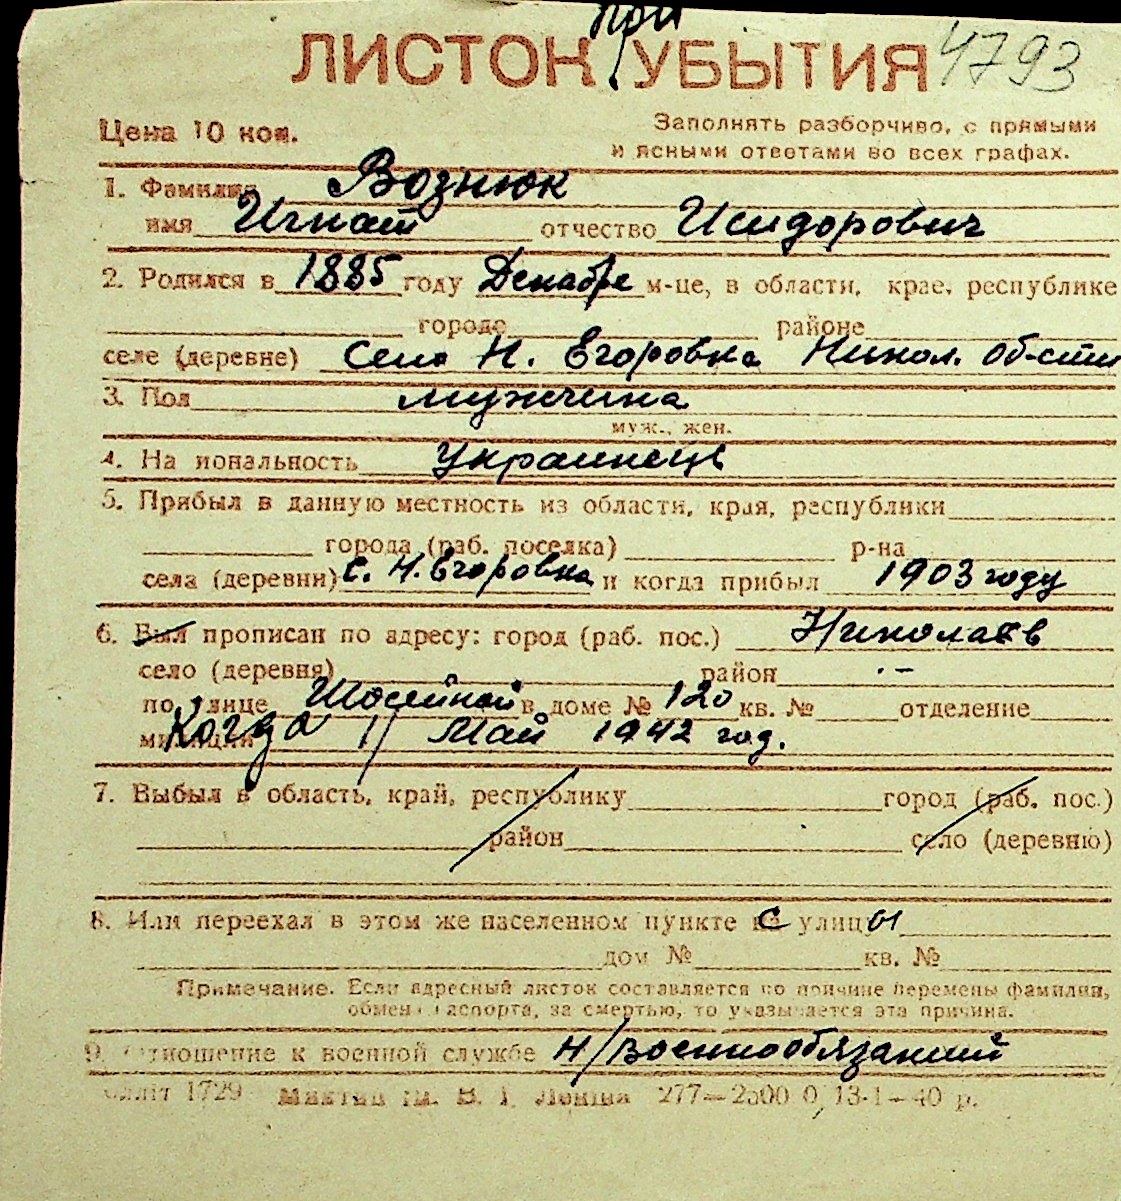 при
ЛИСТОК УБЫТИЯ 4793
Цена 10 коп. Заполнять разборчиво, с прямыми
и ясными ответами во всех графах.
1. Фамилия Вознюк
имя Игнат отчество Исидорович
2. Родился в 1885 году Декабре м-це, в области, крае, республике
городе районе
селе (деревне) Село Н. Егоровка Никол. об-сти
3. Пол мужчина
муж., жен.
4. На иональность Украинець
5. Прибыл в данную местность из области, края, республики
города (раб. поселка) р-на
села (деревни) с. Н. Егоровка и когда прибыл 1903 году
6. Был прописан по адресу: город (раб. пос.) Николаев
село (деревня) район -
по улице Шосейной в доме № 120 кв. № отделение
милиции Когда 11 Май 1942 год.
7. Выбыл в область, край, республику город (раб. пос.)
район село (деревню)
8. Или переехал в этом же населенном пункте с улицы
дом № кв. №
Примечание. Если адресный листок составляется по причине перемены фамилии,
обмена паспорта, за смертью, то указывается эта причина.
9. Отношение к военной службе Н/военнообязанний
блліт 1729 ім. В. І. Леніна 277—2500 0 13-1—40 р.